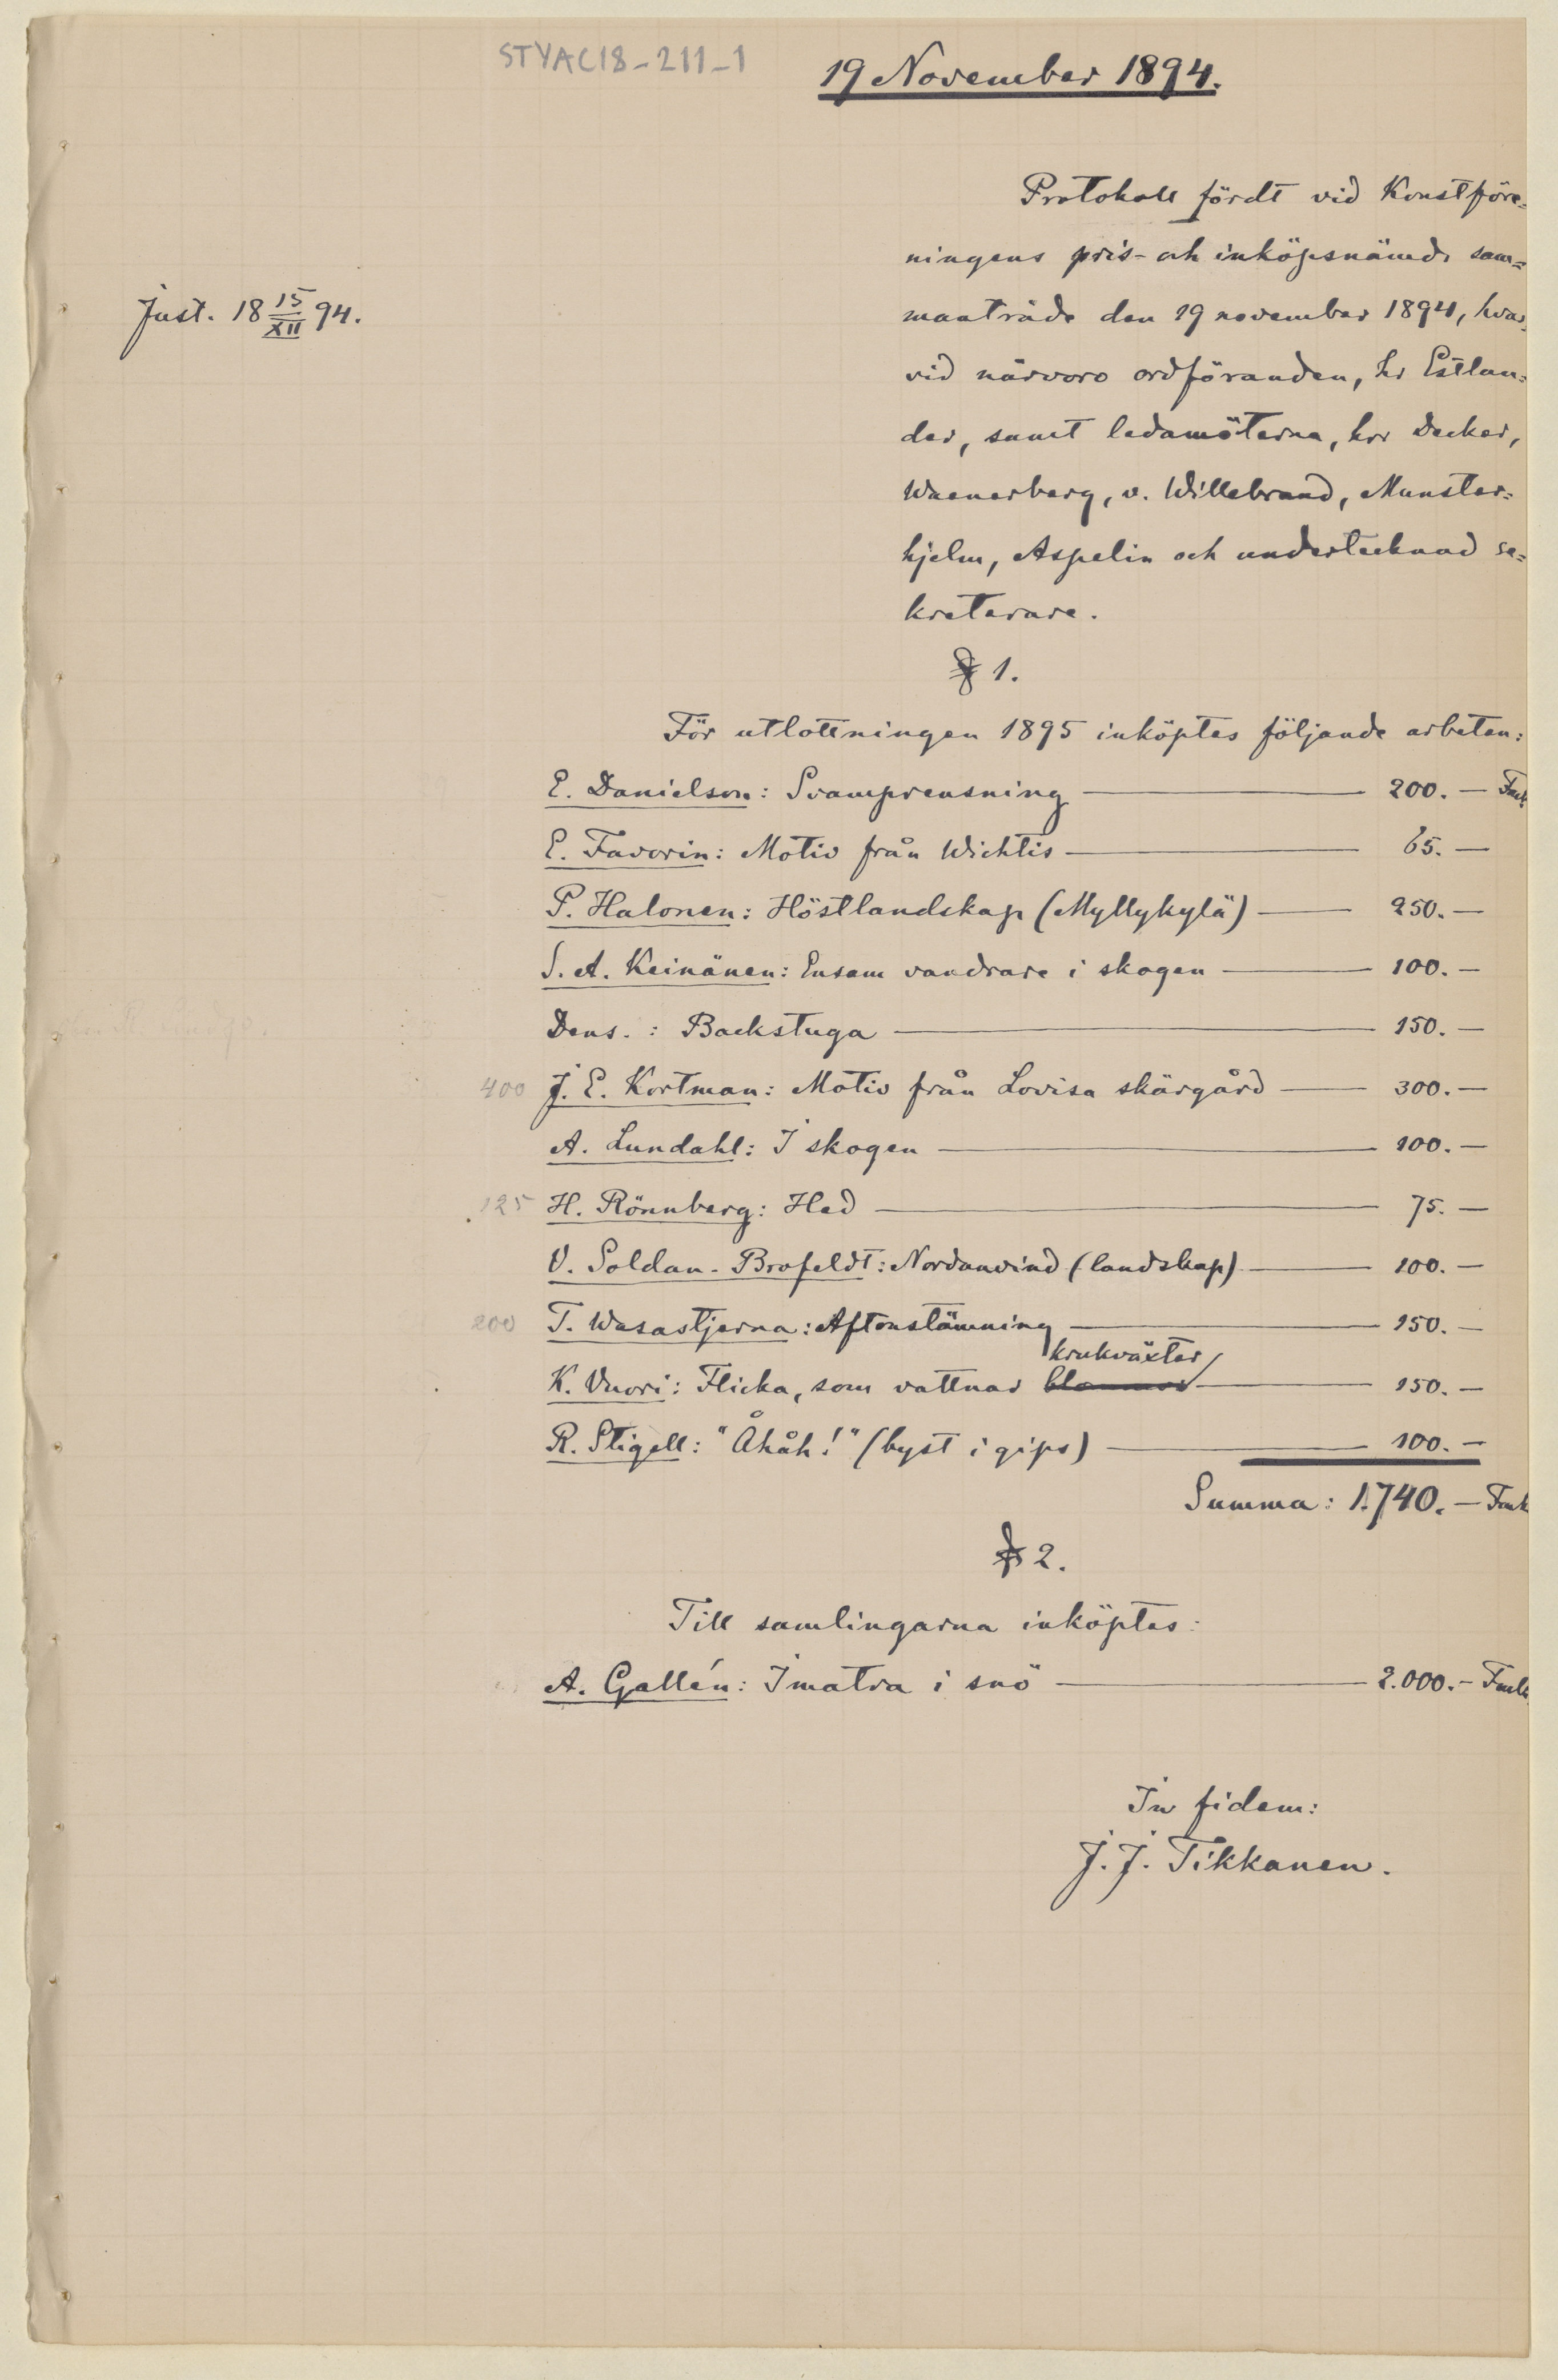 STYAC18-211-1
19 November 1894.
Just. 18 15/XII 94.
Protokoll fördt vid Konstföre=
ningens pris- och inköpsnämds sam=
manträde den 19 november 1894, hvar=
vid närvoro ordföranden, hr Estlan=
der, samt ledamöterna, hrr Decker,
Waenerberg, v. Willebrand, Munster=
hjelm, Aspelin och undertecknad se=
kreterare.
§ 1.
För utlottningen 1895 inköptes följande arbeten:
E. Danielson: Svamprensning — 200. — Fmk
E. Favorin: Motiv från Wichtis — 65. —
P. Halonen: Höstlandskap (Myllykylä) — 250. —
S. A. Keinänen: Ensam vandrare i skogen — 100. —
Dens. : Backstuga — 150. —
400 J. E. Kortman: Motiv från Lovisa skärgård — 300. —
A. Lundahl: I skogen — 100. —
125 H. Rönnberg: Hed — 75. —
V. Soldan-Brofeldt: Nordanvind (landskap) — 100. —
200 T. Wasastjerna: Aftonstämning — 150. —
krukväxter
K. Vuori: Flicka, som vattnar blommor — 150. —
R. Stigell: "Åhåh!" (byst i gips) — 100. —
Summa: 1.740. — Fmk
§ 2.
Till samlingarna inköptes:
A. Gallén: Imatra i snö — 2.000. — Fmk
In fidem:
J. J. Tikkanen.